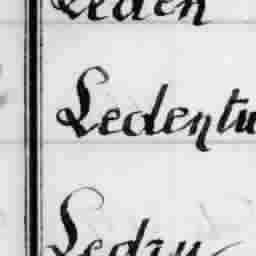 Leden
Ledentu
Ledru